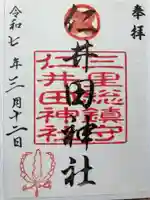 奉拝
三里総鎮守
仁井田神社
仁井田神社
令和七年三月十二日